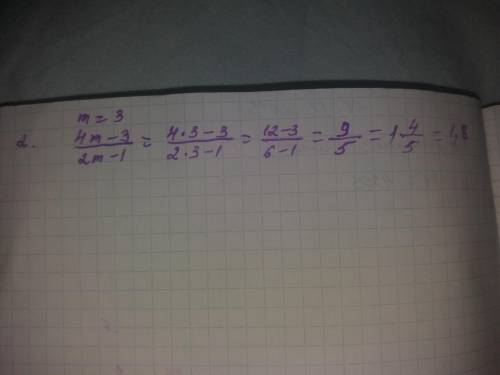 m = 3
2. (4m-3)/(2m-1) = (4·3-3)/(2·3-1) = (12-3)/(6-1) = 9/5 = 1 4/5 = 1,8